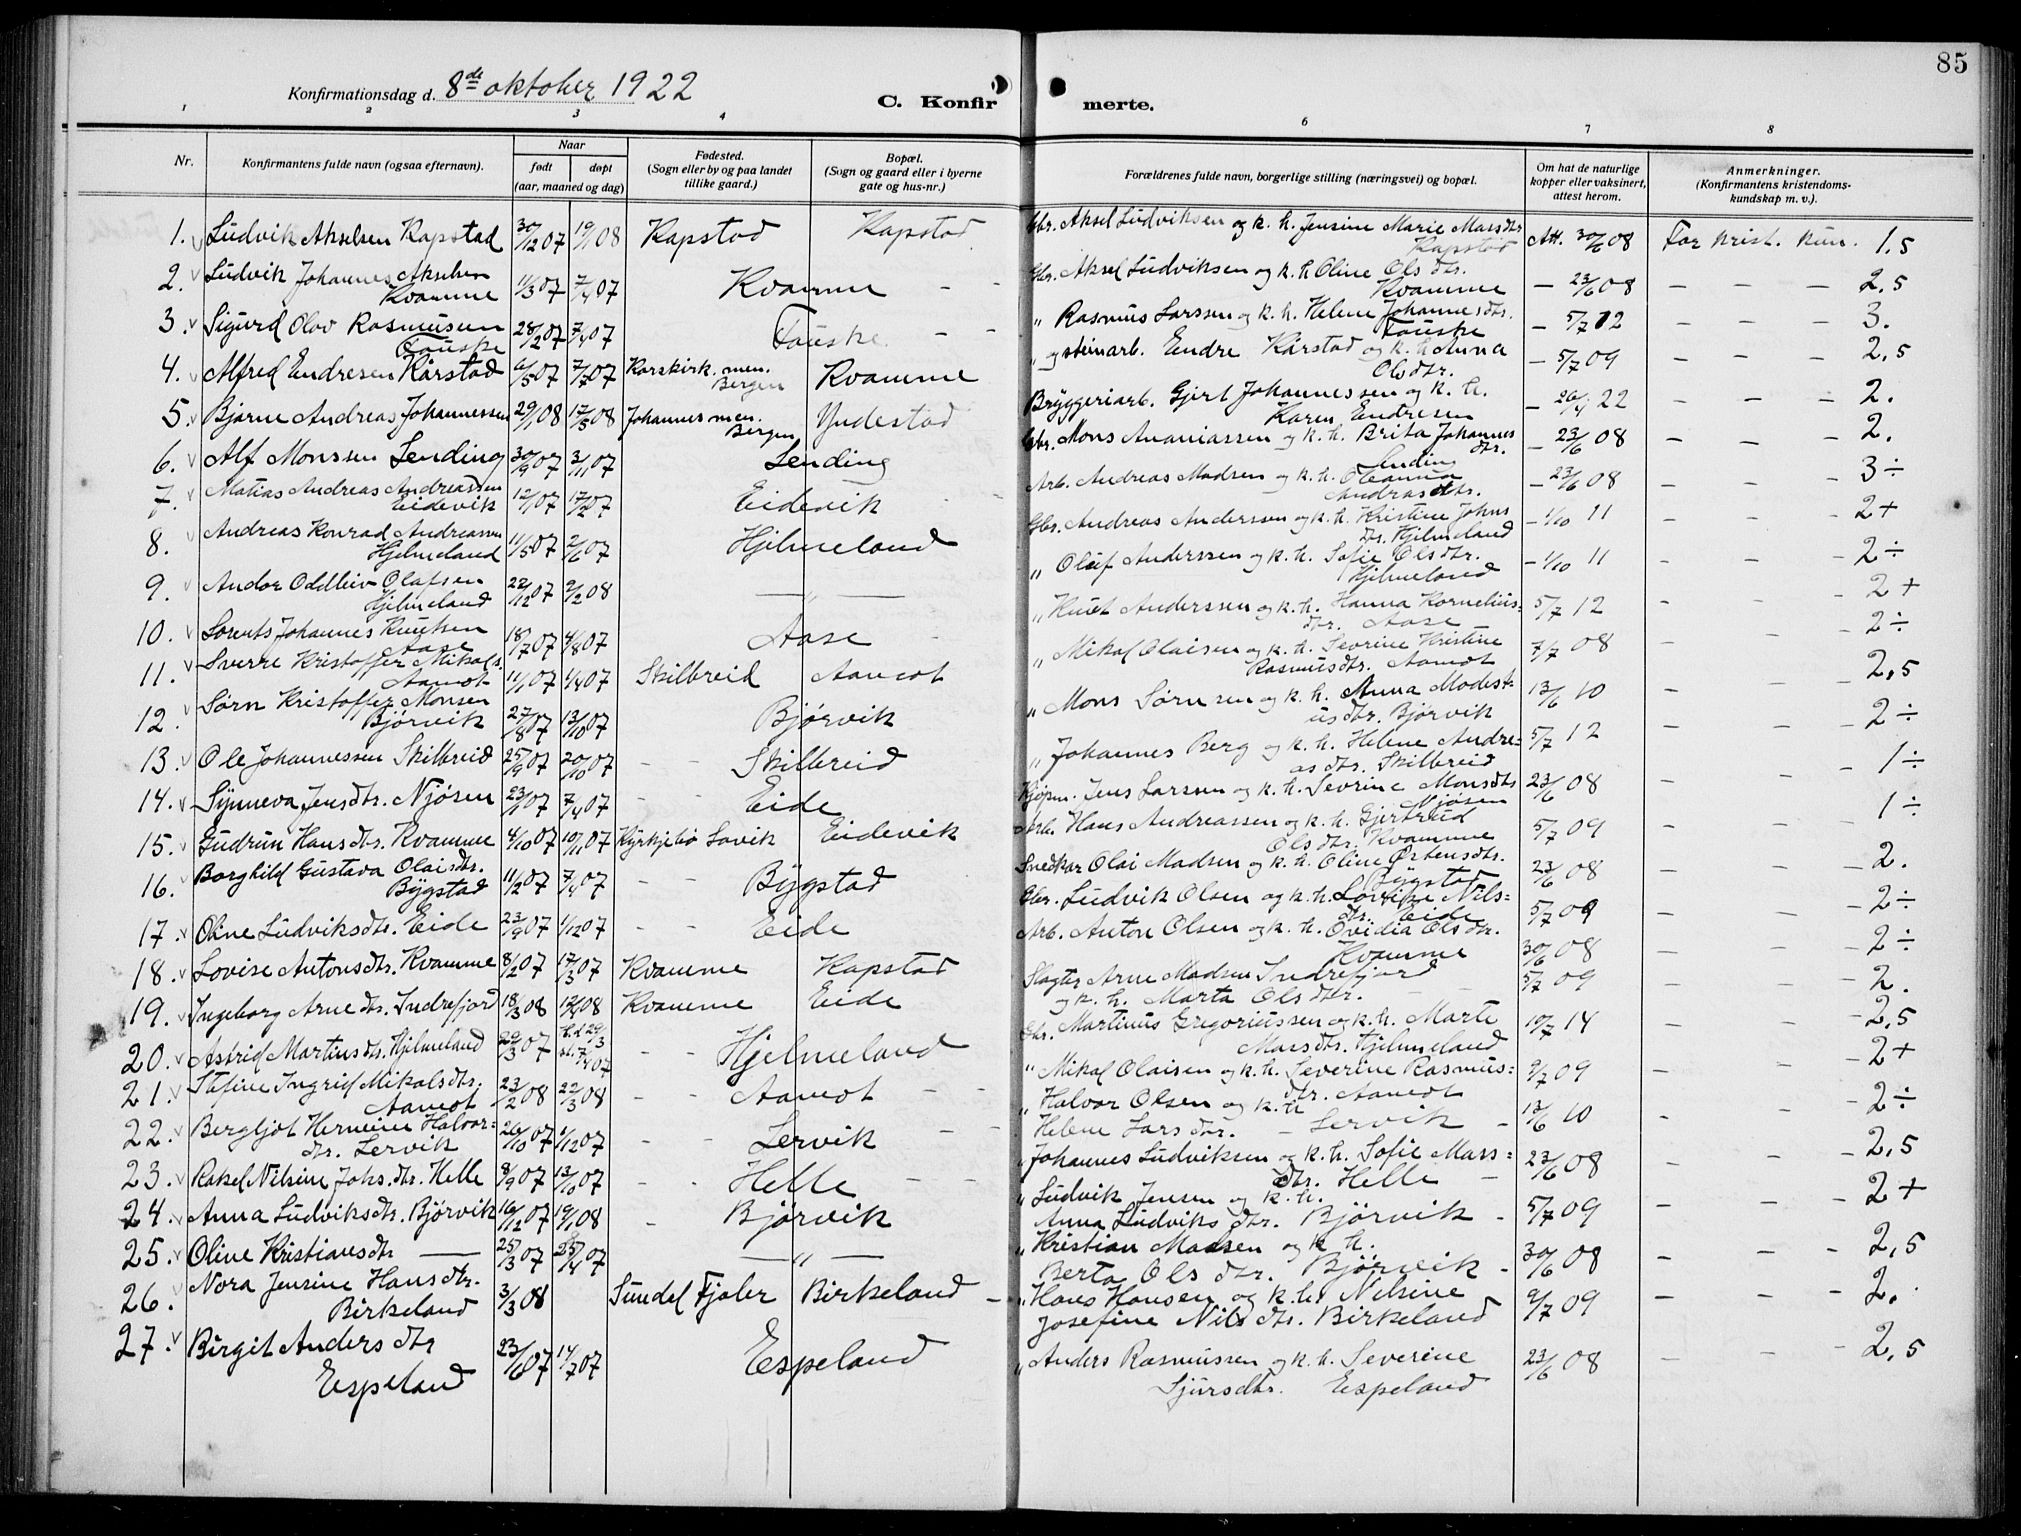 85
Konfirmationsdag d. 8de oktober 1922
C. Konfirmerte.
1 2 3 4 6 7 8
Nr.
Konfirmantens fulde navn (ogsaa efternavn).
Naar
født døpt
(aar, maaned og dag)
Fødested.
(Sogn eller by og paa landet
tillike gaard.)
Bopæl.
(Sogn og gaard eller i byerne
gate og hus-nr.)
Forældrenes fulde navn, borgerlige stilling (næringsvei) og bopæl.
Om hat de naturlige
kopper eller vaksinert,
attest herom.
Anmerkninger.
(Konfirmantens kristendoms-
kundskap m. v.).
1. Ludvik Akselsen Kapstad 30/12 07 19/1 08 Kapstad Kapstad Gbr. Aksel Ludviksen og k. h. Jensine Marie Mass dtr. Kapstad Att. 30/6 08 For krist. kun. 1,5
2. Ludvik Johannes Akselsen Kvamme 11/3 07 7/4 07 Kvamme Gbr. Aksel Ludviksen og k. h. Oline Ols dtr. Kvamme – 23/6 08 – – – 2,5
3. Sigurd Olav Rasmussen Fauske 28/2 07 7/4 07 Fauske " Rasmus Larssen og k. h. Helene Johannes dtr. Fauske – 5/7 12 – – – 3.
4. Alfred Endresen Kårstad 6/5 07 7/7 07 Korskirk. men. Bergen Kvamme " og stenarb. Endre Kårstad og k. h. Anna Ols dtr. – 5/7 09 – – – 2,5
5. Bjarne Andreas Johannessen 29/1 08 17/5 08 Johannes men. Bergen Yndestad Bryggeriarb. Gjert Johannessen og k. h. Karen Endresen – 26/4 22 – – – 2.
6. Alf Monssen Lending 30/9 07 3/11 07 Lending Gbr. Mons Ananiassen og k. h. Brita Johannes dtr. Lending – 23/6 08 – – – 2.
7. Matias Andreas Andreassen Eidevik 12/1 07 17/2 07 Eidevik Arb. Andreas Madsen og k. h. Oleanna Andreas dtr. – 23/6 08 – – – 3÷
8. Andreas Konrad Andreassen Hjelmeland 11/5 07 2/6 07 Hjelmeland Gbr. Andreas Anderssen og k. h. Kristine Johns dtr. Hjelmeland – 1/10 11 – – – 2+
9. Andor Oddleiv Olafsen Hjelmeland 22/12 07 9/2 08 — " — " Oluf Anderssen og k. h. Sofie Ols dtr. Hjelmeland – 1/10 11 – – – 2÷
10. Lorents Johannes Knutsen Aase 18/7 07 4/8 07 Aase " Knut Anderssen og k. h. Hanna Kornelius= dtr. Aase 5/7 12 – – – 2+
11. Sverre Kristoffer Mikals. Aamot 11/1 07 1/4 07 Skilbreid Aamot " Mikal Olaisen og k. h. Severine Kristine Rasmus dtr. Aamot 7/7 08 – – – 2÷
12. Sørn Kristoffer Monsen Bjørvik 27/8 07 13/10 07 Bjørvik " Mons Sørnsen og k. h. Anna Modest= us dtr. Bjørvik 13/6 10 – – – 2,5
13. Ole Johannessen Skilbreid 25/9 07 20/10 07 – – Skilbreid " Johannes Berg og k. h. Helene Andre= as dtr. Skilbreid 5/7 12 – – – 2÷
14. Synneva Jens dtr. Njøsen 23/1 07 7/4 07 – – Eide Kjøpm. Jens Larssen og k. h. Severine Mons dtr. Njøsen 23/6 08 – – – 1÷
15. Gudrun Hans dtr. Kvamme 4/10 07 10/11 07 Kyrkjebø Lavik Eidevik Arb. Hans Andreassen og k. h. Gjertrud Ols dtr. Kvamme 5/7 09 – – – 1÷
16. Borghild Gustava Olai dtr. Bygstad 11/2 07 7/4 07 – – Bygstad Snedkar Olai Madsen og k. h. Oline Østens dtr. Bygstad 23/6 08 – – – 2.
17. Oline Ludviks dtr. Eide 23/9 07 1/12 07 – – Eide Gbr. Ludvik Olsen og k. h. Lovise Nils= dtr. Eide 5/7 09 – – – 2÷
18. Lovise Antons dtr. Kvamme 8/2 07 17/3 07 Kvamme Kapstad Arb. Anton Olsen og k. h. Ovidia Ols dtr. Kvamme 30/6 08 – – – 2÷
19. Ingeborg Arne dtr. Indrefjord 18/3 08 12/4 08 Kvamme Eide Slagter Arne Madsen Indrefjord og k. h. Marta Ols dtr. 5/7 09 – – – 2.
20. Astrid Martins dtr. Hjelmeland 29/3 07 – – Hjelmeland Gbr. Martinus Gregoriussen og k. h. Marte Mass dtr. Hjelmeland 10/7 14 – – – 2,5
21. Stefine Ingrid Mikals dtr. Aamot 23/2 08 22/3 08 – – Aamot " Mikal Olaisen og k. h. Severine Rasmus= dtr. Aamot 9/7 09 – – – 2+
22. Bergljot Hermine Halvor= dtr. Lervik 26/10 07 1/12 07 – – Lervik " Halvor Olsen og k. h. Helene Lars dtr. – Lervik – 13/6 10 – – – 2÷
23. Rakel Nilsine Johs. dtr. Helle 8/9 07 13/10 07 – – Helle " Johannes Ludviksen og k. h. Sofie Mass= dtr. Helle – 23/6 08 – – – 2,5
24. Anna Ludviks dtr. Bjørvik 16/12 07 19/1 08 – Bjørvik " Ludvik Jensen og k. h. Anna Ludviks dtr. Bjørvik – 5/7 09 – – – 2+
25. Oline Kristians dtr — 25/3 07 25/4 07 — " — " Kristian Madsen og k. h. Berta Ols dtr. Bjørvik – 30/6 08 – – – 2,5
26. Nora Jensine Hans dtr. Birkeland 3/3 08 Sundel Fjaler Birkeland – " Hans Hansen og k. h. Nilsine Josefine Nils dtr. Birkeland 9/7 09 – – – 2.
27. Birgit Anders dtr Espeland 23/6 07 14/7 07 Espeland " Anders Rasmussen og k. h. Severine Sjurs dtr. Espeland 23/6 08 – – – 2,5